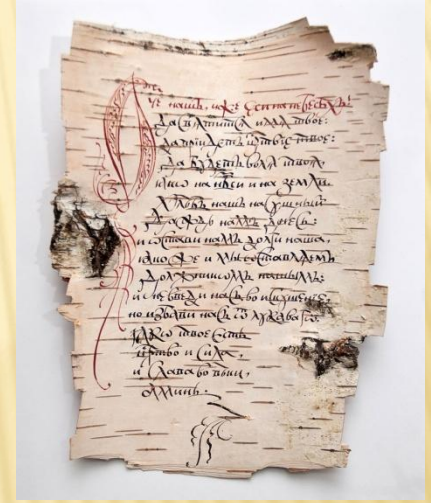 Ѻ҃че нашъ, иже єси на небесѣхъ!
Да свѧтитсѧ имѧ твоє:
да прїидетъ црⷭ҇твїе твоє:
да бꙋдетъ волѧ твоѧ,
ꙗко на нб҃си и на земли.
Хлѣбъ нашъ насꙋщный
даждь намъ днесь:
и ѡстави намъ долги нашѧ,
ꙗкоже и мы ѡставлѧемъ
должникомъ нашымъ:
и не введи насъ во искꙋшенїе,
но избави насъ ѿ лꙋкавагѡ
ꙗкѡ твоє єсть
црⷭ҇тво и сила,
и слава во вѣки,
аминь.